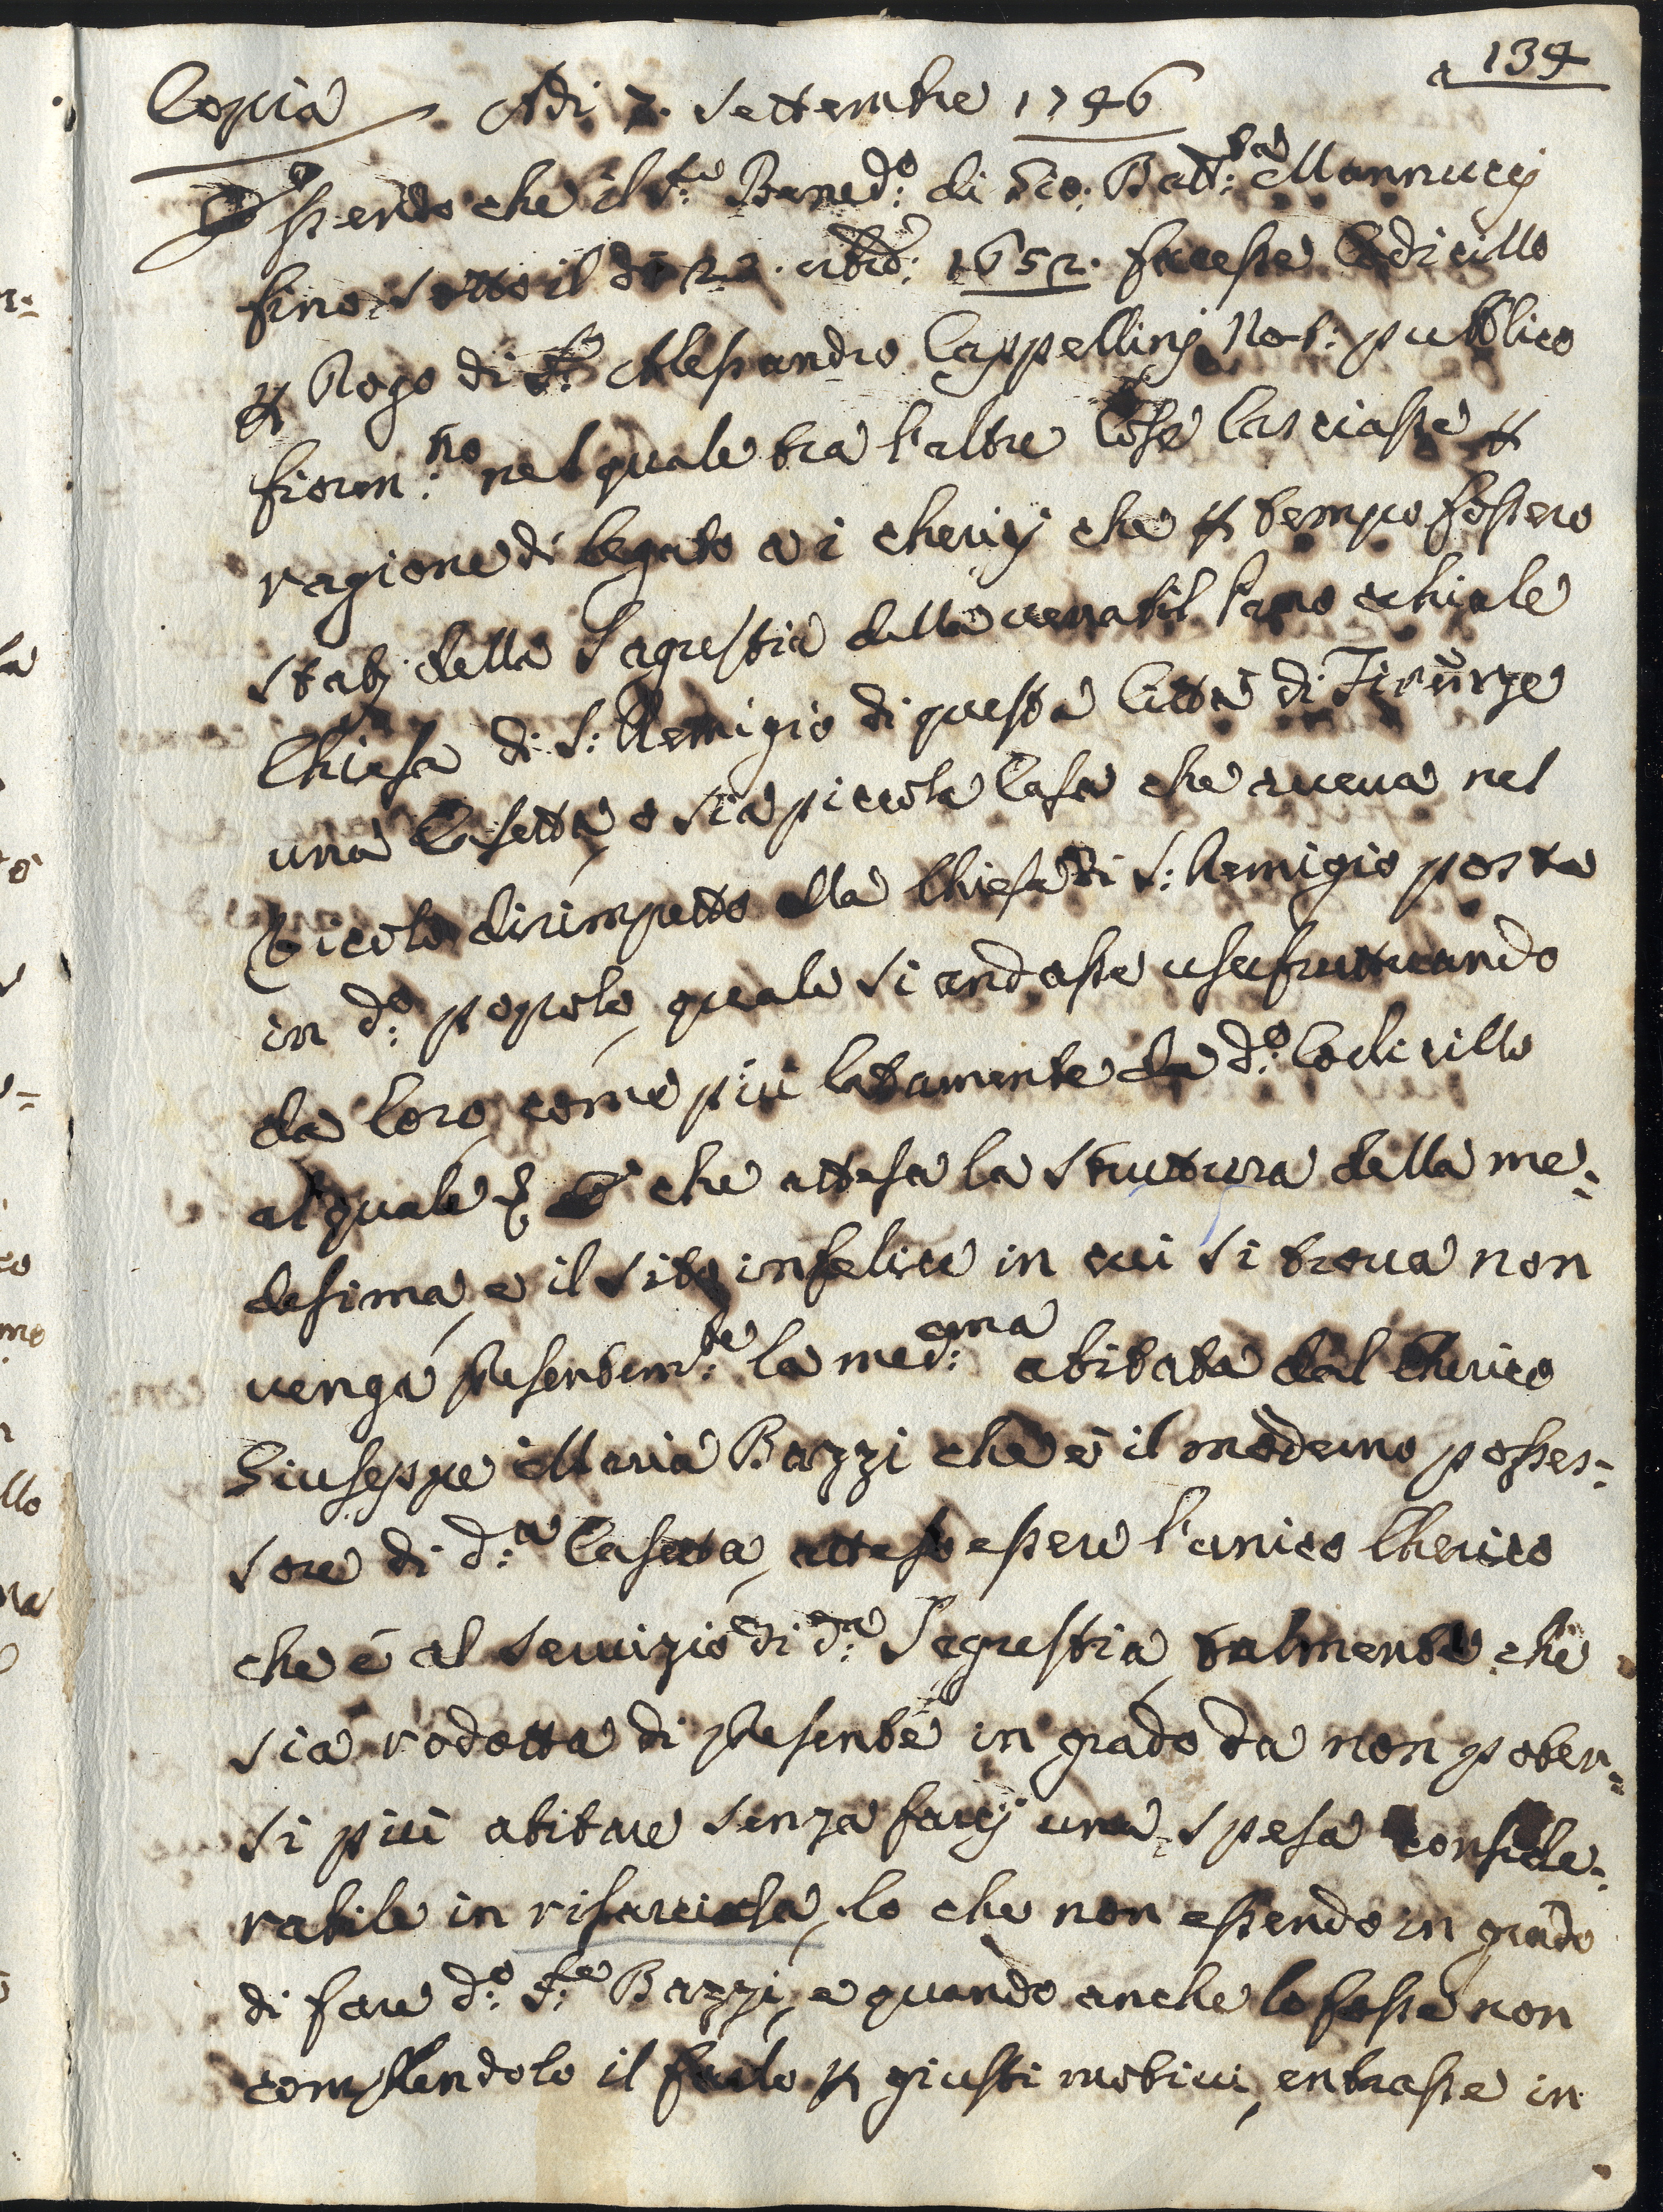 a 134
Copia Adi 7. Settembre 1746
Essendo che il S:re Bened:o di Gio: Batt:a Mannucci
fino sotto il dì 22. 8bre: 1652. facesse Codicillo
p Rogo di S:r Alessandro Cappellinj Not: pubblico
fioren:no nel quale tra l'altre Cose lasciasse p
ragione di legato a i chericj che p tempo fossero
statj della Sagrestia della venerabil Parochiale
Chiesa di S: Remigio di questa Città di Firenze
una Casetta, o sia piccola Casa che aveva nel
Vicolo dirimpetto alla Chiesa di S: Remigio posta
in d:o popolo, quale si andasse usufruttuando
da loro, come più latamente da d:o Codicillo
al quale & E che attesa la struttura della me=
desima, e il sito infelice in cui si trova non
venga presentem:te la med:ema abitata dal Cherico
Giuseppe Maria Bazzi che è il moderno posses=
sore di d:a Casetta, atteso essere l'unico Cherico
che è al servizio di d:a Sagrestia, talmente che
sia rodotta di presente in grado da non poter=
si più abitare senza farcj una spesa conside=
rabile in risarcirla, lo che non essendo in grado
di fare d:o S:re Bazzi, e quando anche lo fosse non
complendolo il farlo p giusti motivi, entrasse in